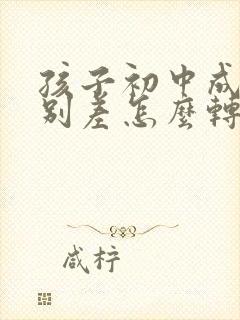 孩子初中成
别差怎麼轉
咸柠